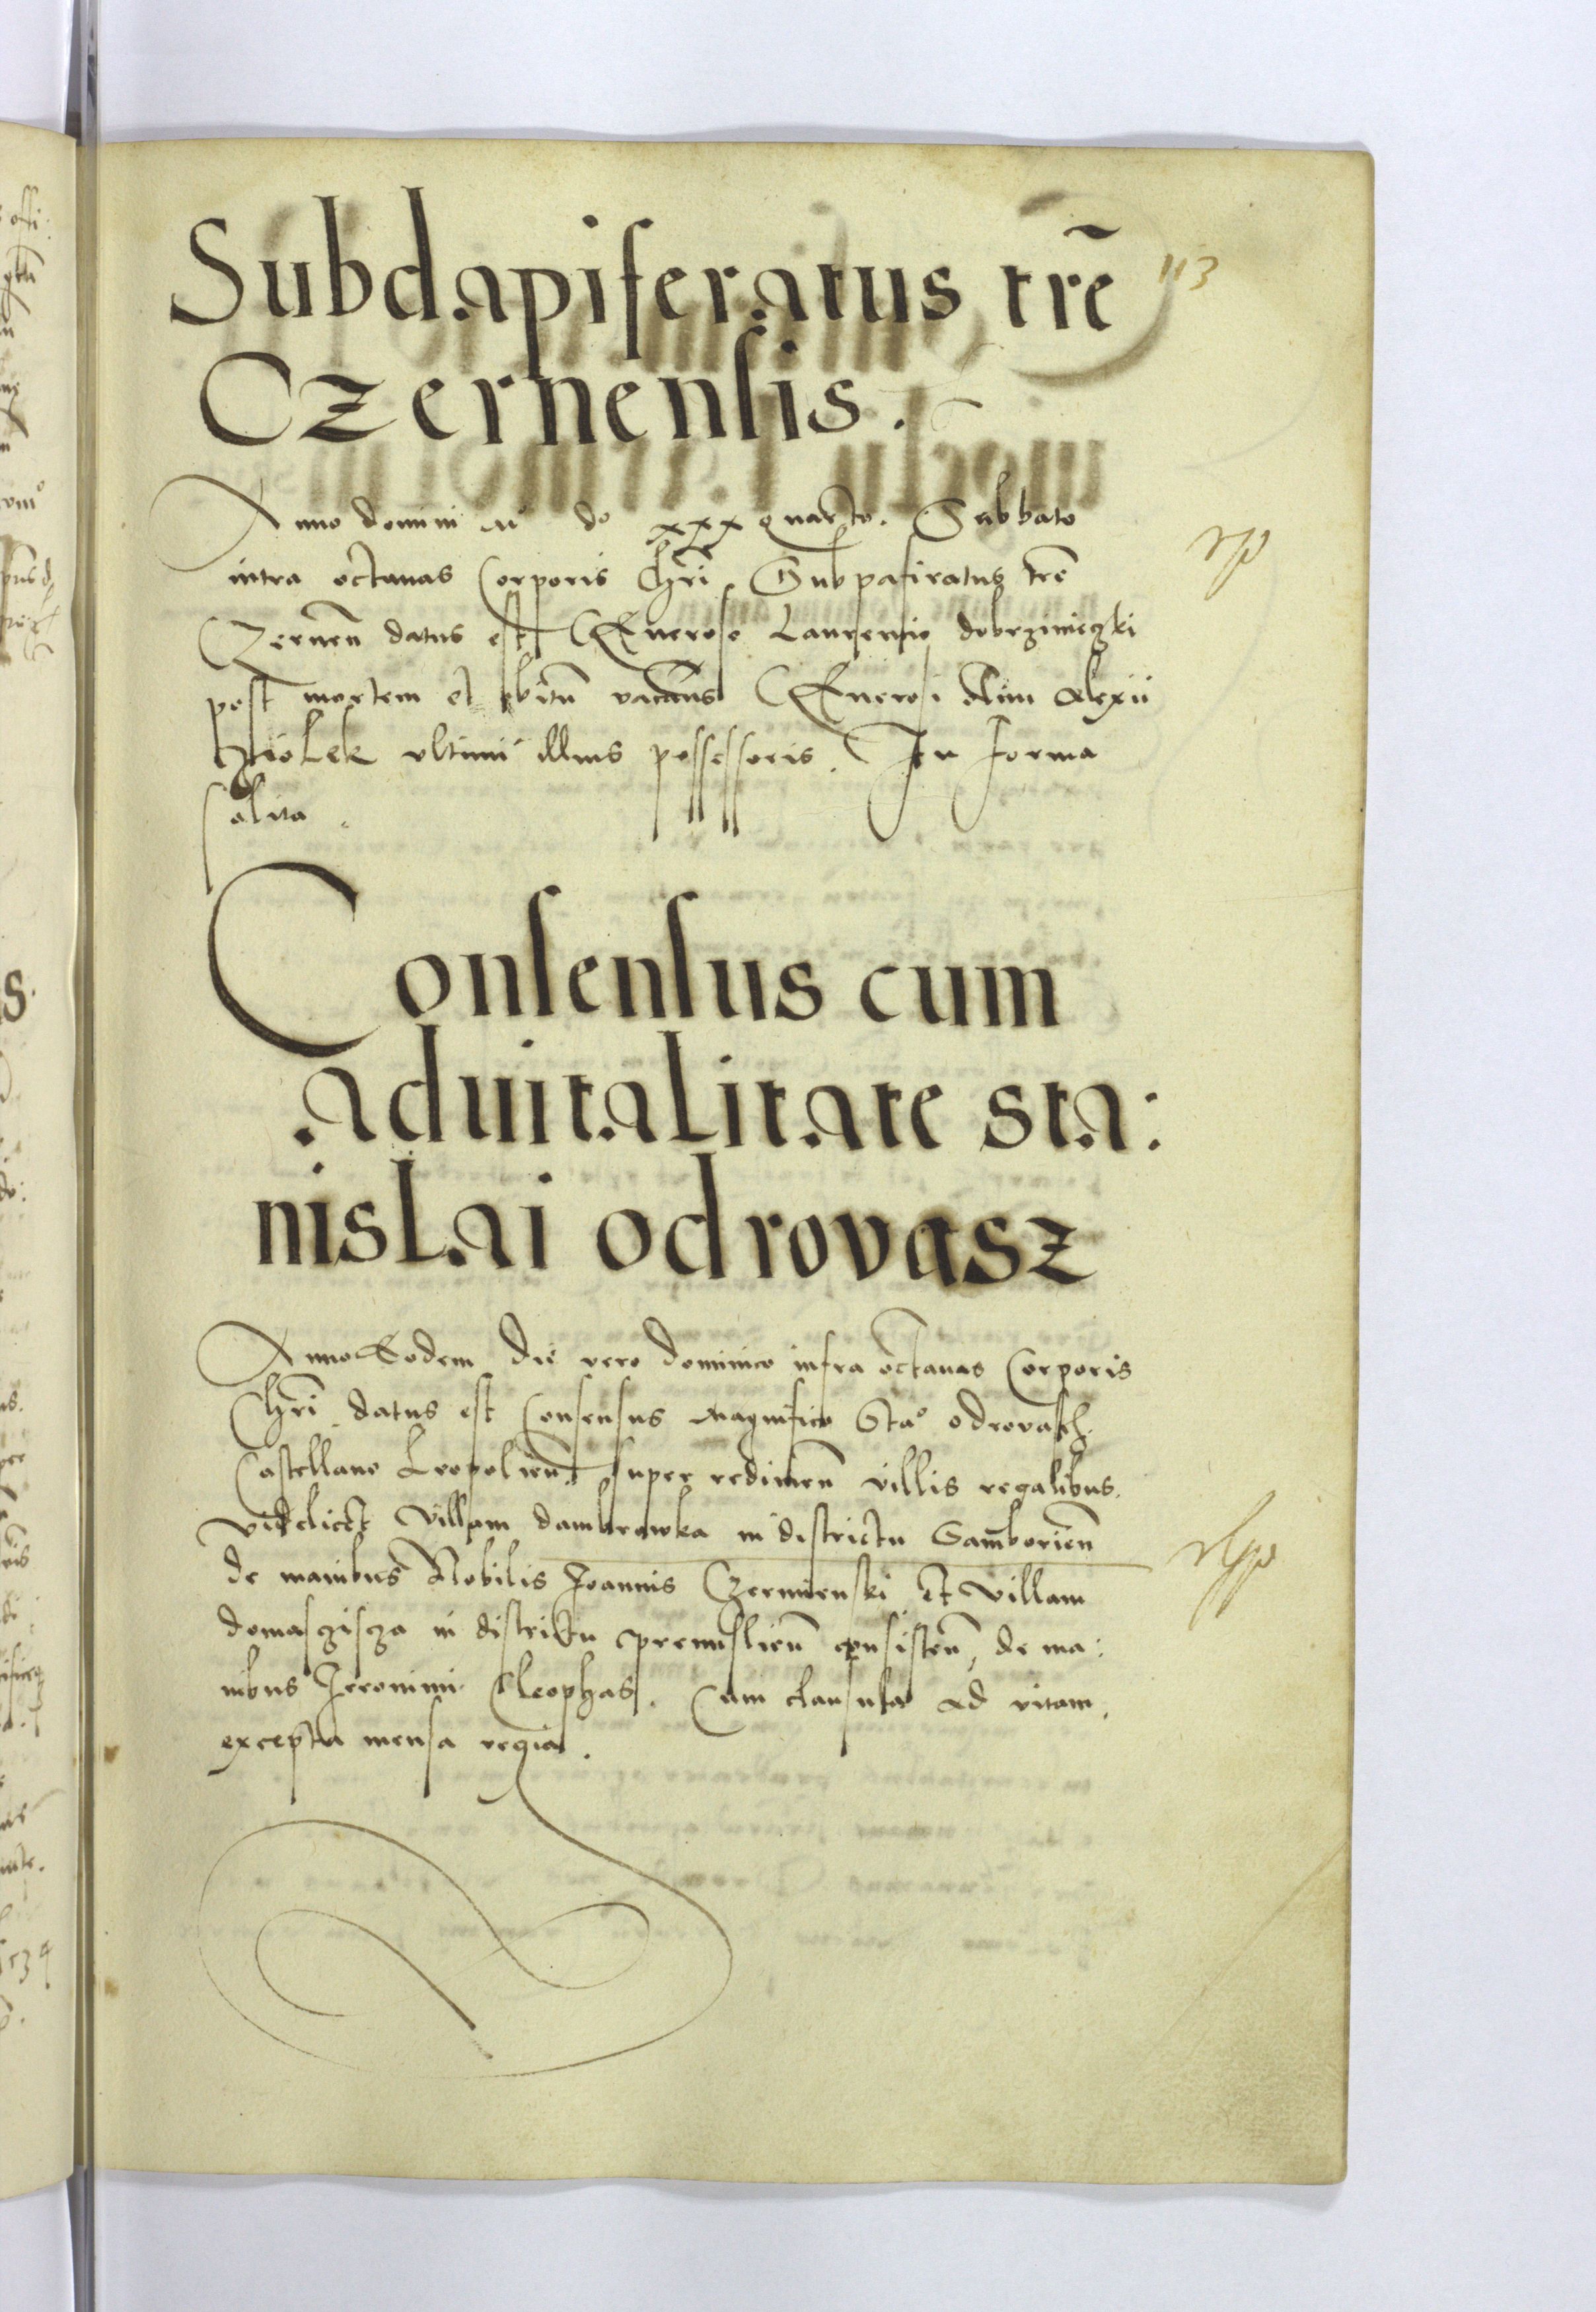 Subdapiferatus trē
113
Czernensis.
Anno domini M do xxx quarto. Sabbato
intra octauas Corporis Chri̅ Subpafiratus tre̅
Czernen̅ datus est Generoso Laurentio dobrzinieczki
post mortem et obitu̅ vacans Generosi olim Alexii
ultimi illius possessoris. In forma
solita.
Consensus cum
aduitalitate sta:
nislai odrovasz
Anno Eodem die vero dominico infra octauas Corporis
Chri̅ datus est Consensus Magnifico Sta° odrovasch
Castellano Leopolien̅. super redimen̅ villis regalibus.
videlicet villam dambrowka in districtu Samborien̅
de manibus Nobilis Joannis Czerminski et villam
domaschicza in districtu premislien̅ consisten̅, de ma:
nibus Jeronimi Cleophas. Cum clausula ad vitam.
excepta mensa regia.